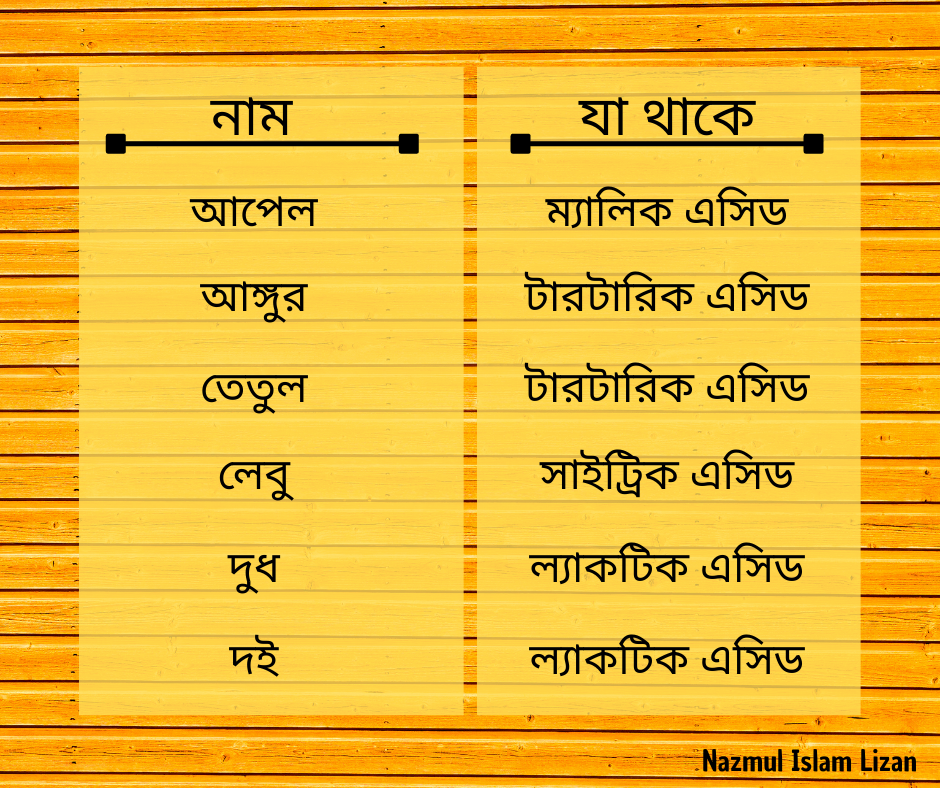 নাম যা থাকে
আপেল ম্যালিক এসিড
আঙ্গুর টারটারিক এসিড
তেতুল টারটারিক এসিড
লেবু সাইট্রিক এসিড
দুধ ল্যাকটিক এসিড
দই ল্যাকটিক এসিড
Nazmul Islam Lizan